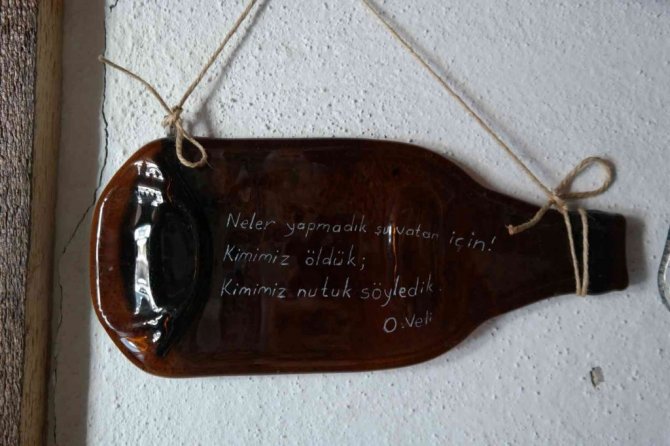 Neler yapmadık şu vatan için!
Kimimiz öldük;
Kimimiz nutuk söyledik.
O. Veli